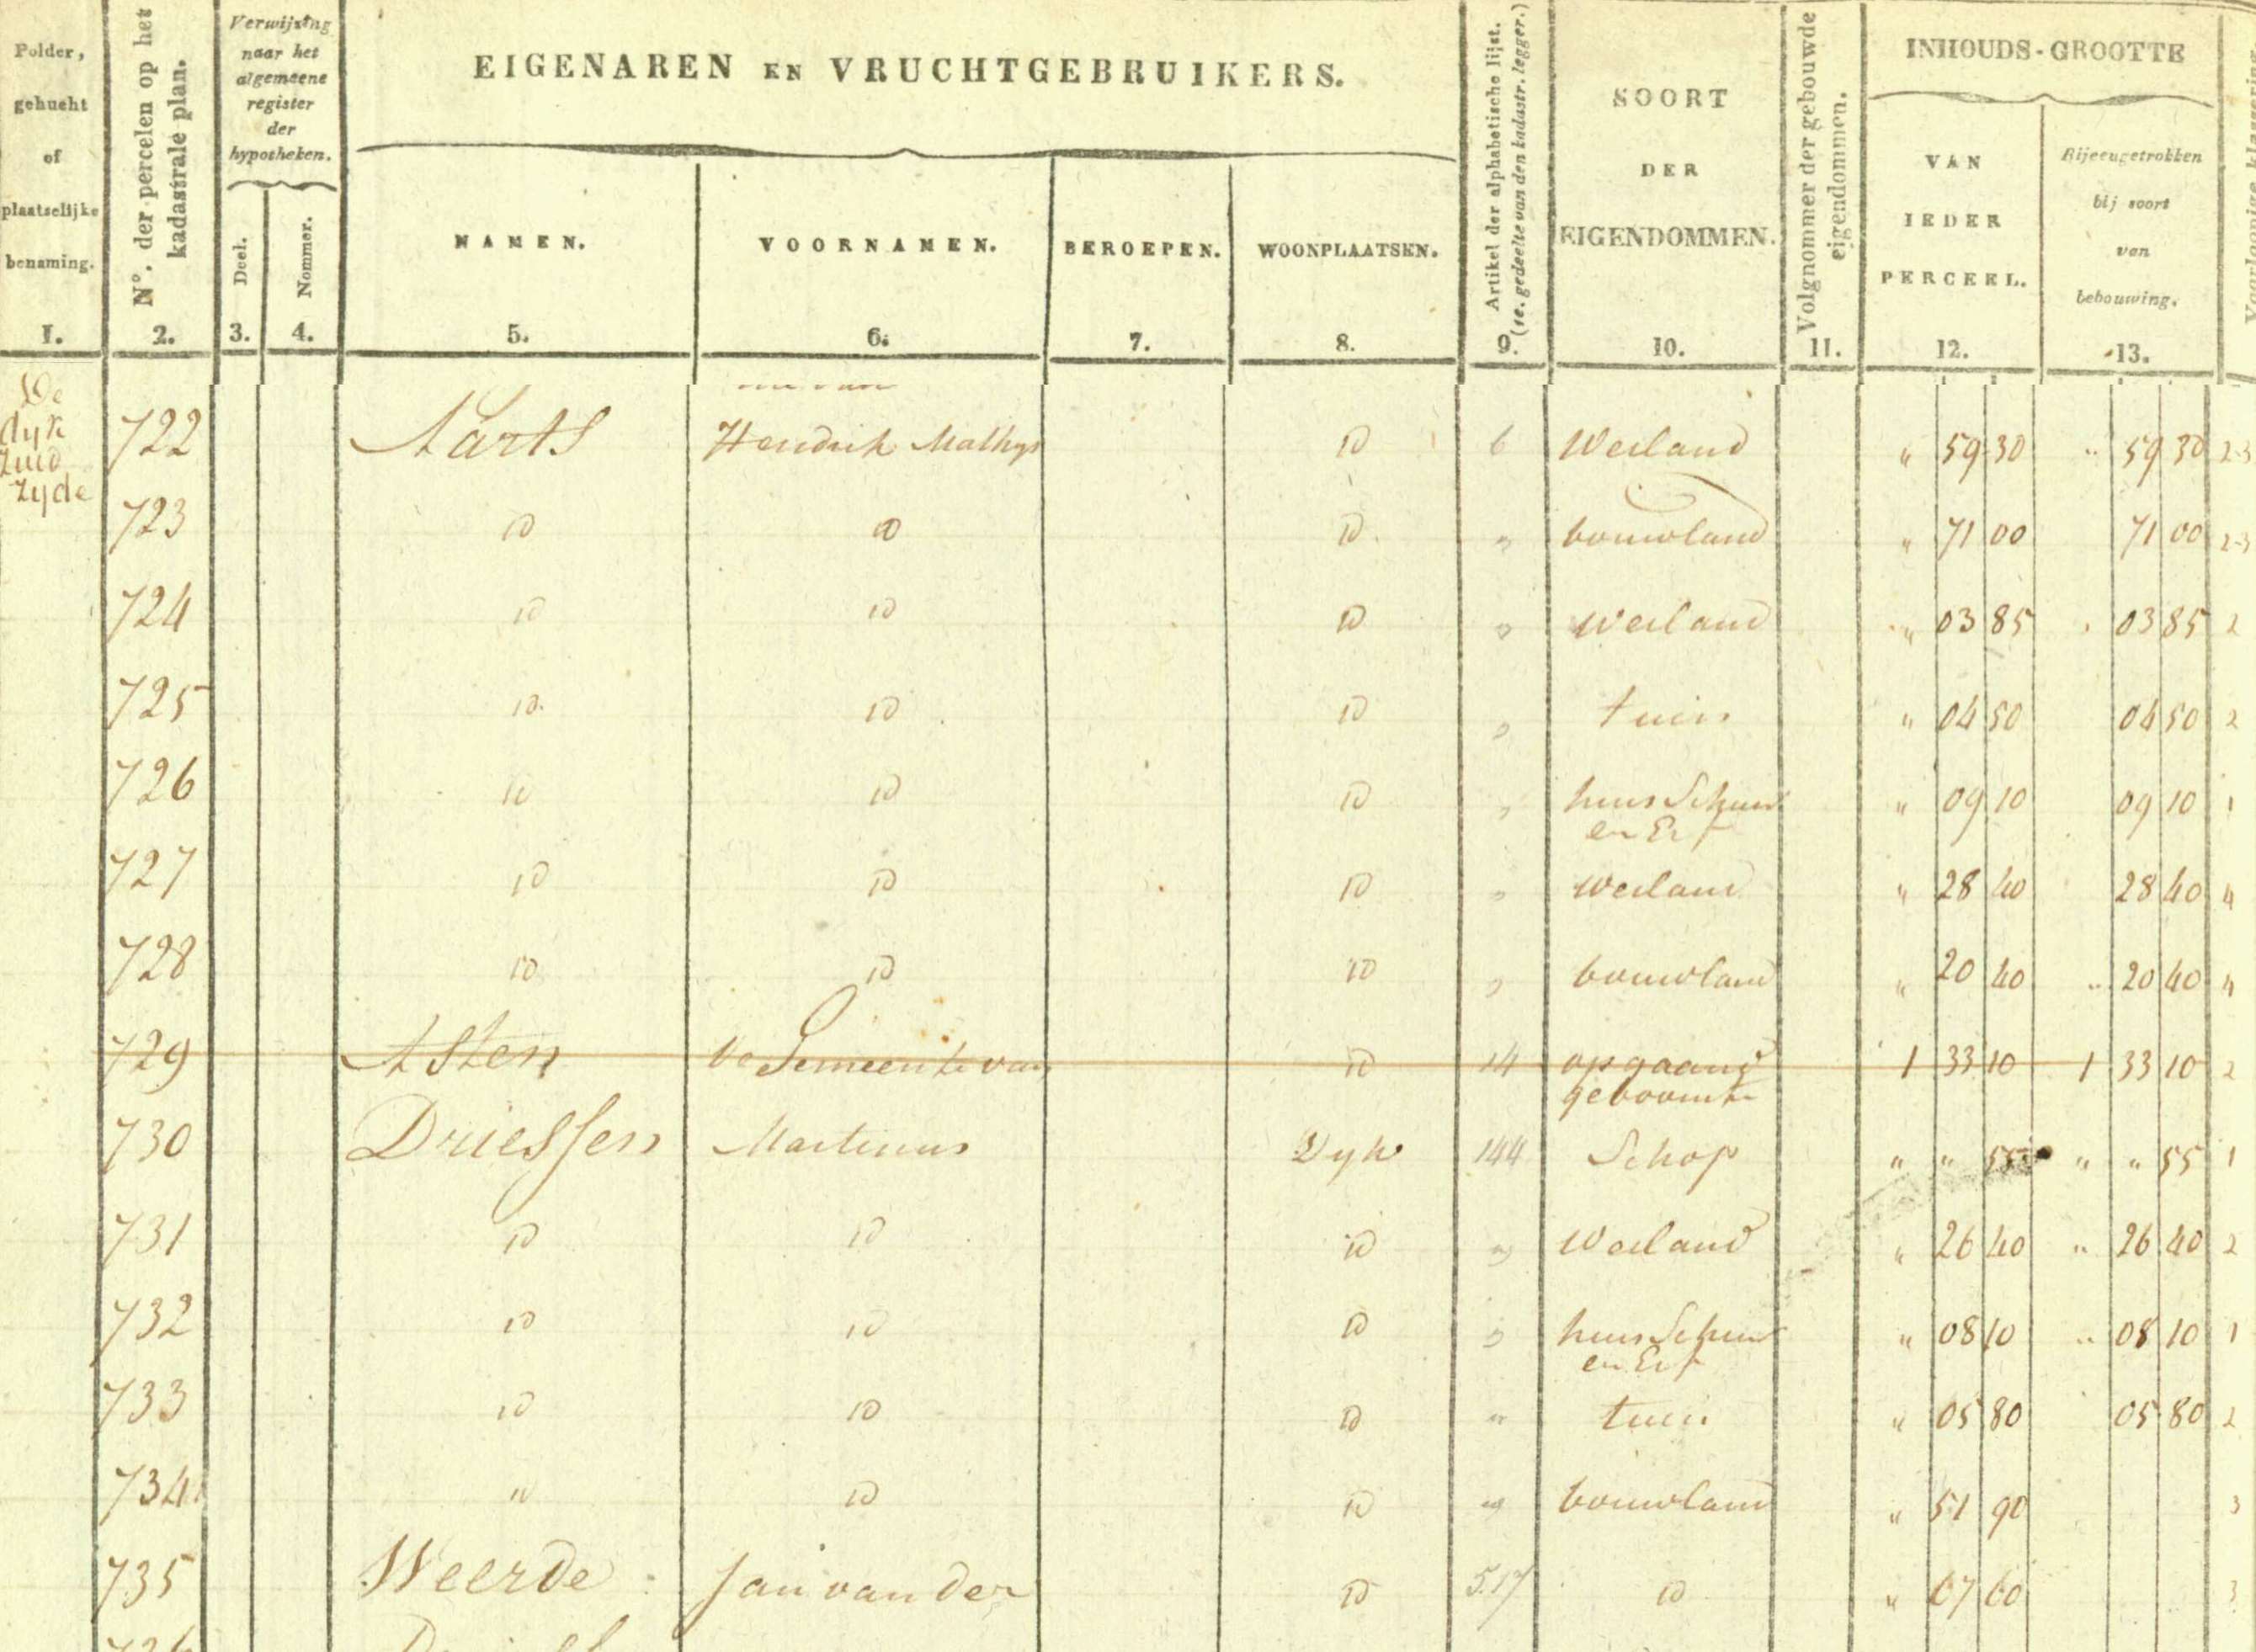 Polder, gehucht of plaatselijke benaming.
N°. der percelen op het kadastrale plan.
Verwijzing naar het algemeene register der hypotheken.
Deel.
Nommer.
EIGENAREN EN VRUCHTGEBRUIKERS.
NAMEN.
VOORNAMEN.
BEROEPEN.
WOONPLAATSEN.
Artikel der alphabetische lijst. (1e. gedeelte van den kadastr. legger.)
SOORT DER EIGENDOMMEN.
Volgnommer der gebouwde eigendommen.
INHOUDS-GROOTTE
VAN IEDER PERCEEL.
Bijeengetrokken bij soort van bebouwing.
Voorloopige klassering
1. 2. 3. 4. 5. 6. 7. 8. 9. 10. 11. 12. 13.
De dyk zuid zyde
722 Aarts Hendrik Mathys ID 6 Weiland " 59 30 " 59 30 2-3
723 ID ID ID " bouwland " 71 00 71 00 2-3
724 ID ID ID " Weiland " 03 85 03 85 2
725 ID ID ID " tuin " 04 50 04 50 2
726 ID ID ID " huis Schuur " 09 10 09 10 1
en Erf
727 ID ID ID " weiland " 28 40 28 40 4
728 ID ID ID " bouwland " 20 40 " 20 40 4
729 Asten de Gemeente van ID 14 opgaand 1 33 10 1 33 10 2
geboomte
730 Driessen Martinus Dyk 144 Schop " " 55 " " 55 1
731 ID ID ID " Weiland " 26 40 " 26 40 2
732 ID ID ID " huis Schuur " 08 10 " 08 10 1
en Erf
733 ID ID ID " tuin " 05 80 05 80 2
734 " ID ID " bouwland " 51 90 3
735 Weerde Jan van der ID 517 ID " 67 60 3
736